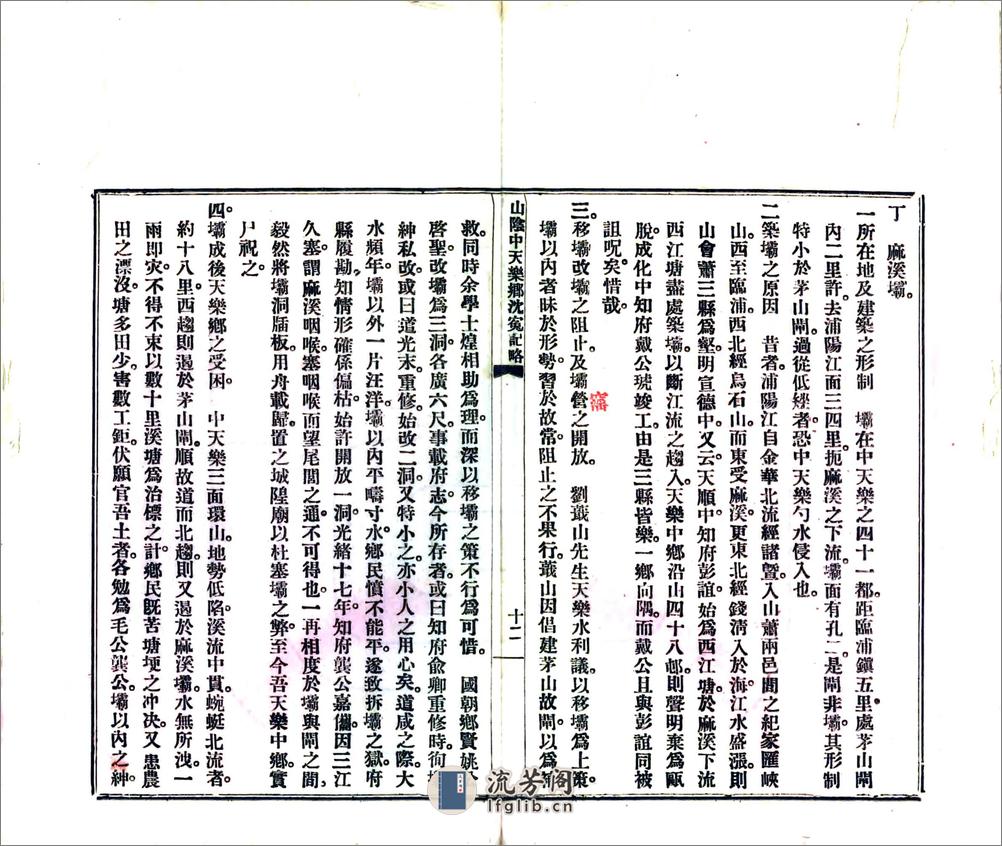 丁　麻溪壩。
一所在地及建築之形制　壩在中天樂之四十一都。距臨浦鎮五里。處茅山閘
內二里許。去浦陽江面三四里。扼麻溪之下流。壩面有孔二。是閘非壩。其形制
特小於茅山閘。過從低矬者。恐中天樂勺水侵入也。
二築壩之原因　昔者。浦陽江自金華北流經諸暨。入山蕭兩邑間之紀家匯峽
山西至臨浦。西北經烏石山。而東受麻溪。更東北經錢清入於海。江水盛漲。則
山會蕭三縣爲壑。明宣德中。又云天順中。知府彭誼。始爲西江塘。於麻溪下流
西江塘盡處築壩。以斷江流之趨入。天樂中鄉沿山四十八邨。則聲明棄爲甌
脫。成化中知府戴公琥竣工。由是三縣皆樂。一鄉向隅。而戴公且與彭誼同被
詛呪矣。惜哉。
三。移壩改壩之阻止及壩營之開放。　劉蕺山先生天樂水利議。以移壩爲上策。
壩以內者昧於形勢。習於故常。阻止之不果行。蕺山因倡建茅山故閘。以爲
山陰中天樂鄉沈寃記略
十二
救。同時余學士煌相助爲理。而深以移壩之策不行爲可惜。　國朝鄉賢姚
啓聖。改壩爲三洞。各廣六尺。事載府志。今所存者。或曰知府兪卿重修時。徇
紳私改。或曰道光末。重修始改二洞。又特小之。亦小人之用心矣。道咸之際。大
水頻年。壩以外一片汪洋。壩以內平疇寸水。鄉民憤不能平。遂致拆壩之獄。府
縣履勘。知情形確係偏枯。始許開放一洞。光緒十七年。知府龔公嘉儁。因三江
久塞。謂麻溪咽喉。塞咽喉而望尾閭之通。不可得也。一再相度於壩與閘之間。
毅然將壩洞牐板。用舟載歸。置之城隍廟。以杜塞壩之弊。至今吾天樂中鄉。實
尸祝之。
四。壩成後天樂鄉之受困。　中天樂三面環山。地勢低陷。溪流中貫。蜿蜒北流者。
約十八里。西趨則遏於茅山閘。順故道而北趨。則又遏於麻溪壩。水無所洩。一
雨即灾。不得不束以數十里溪塘爲治標之計。鄉民旣苦塘埂之冲决。又患農
田之漂沒。塘多田少。害數工鉅。伏願官吾土者。各勉爲毛公龔公。壩以內之紳
流芳阁
lfglib.cn